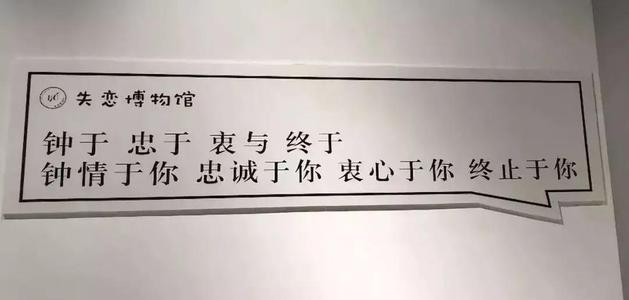 失恋博物馆
钟于 忠于 衷与 终于
钟情于你 忠诚于你 衷心于你 终止于你